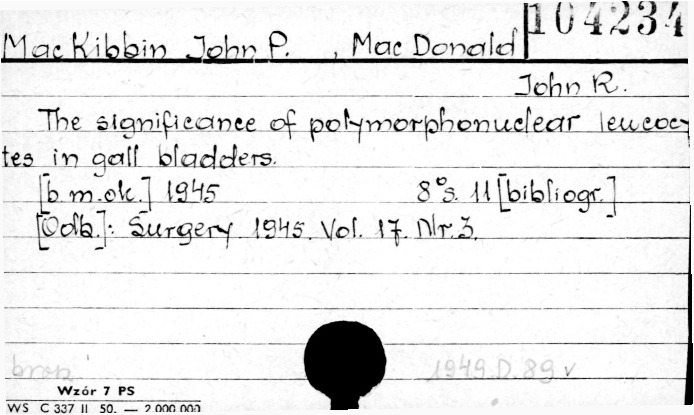 104234
Mac Kibbin John P. , Mac Donald
John R.
The significance of polymorphonuclear leucocy
tes in gall bladders.
[b.m.ok.] 1945 8°s. 11 [bibliogr.]
[Odb.]: Surgery 1945. Vol. 17. Nr. 3.
brak 1949.D.89 v
Wzór 7 PS
WS C 337 II 50. — 2.000.000